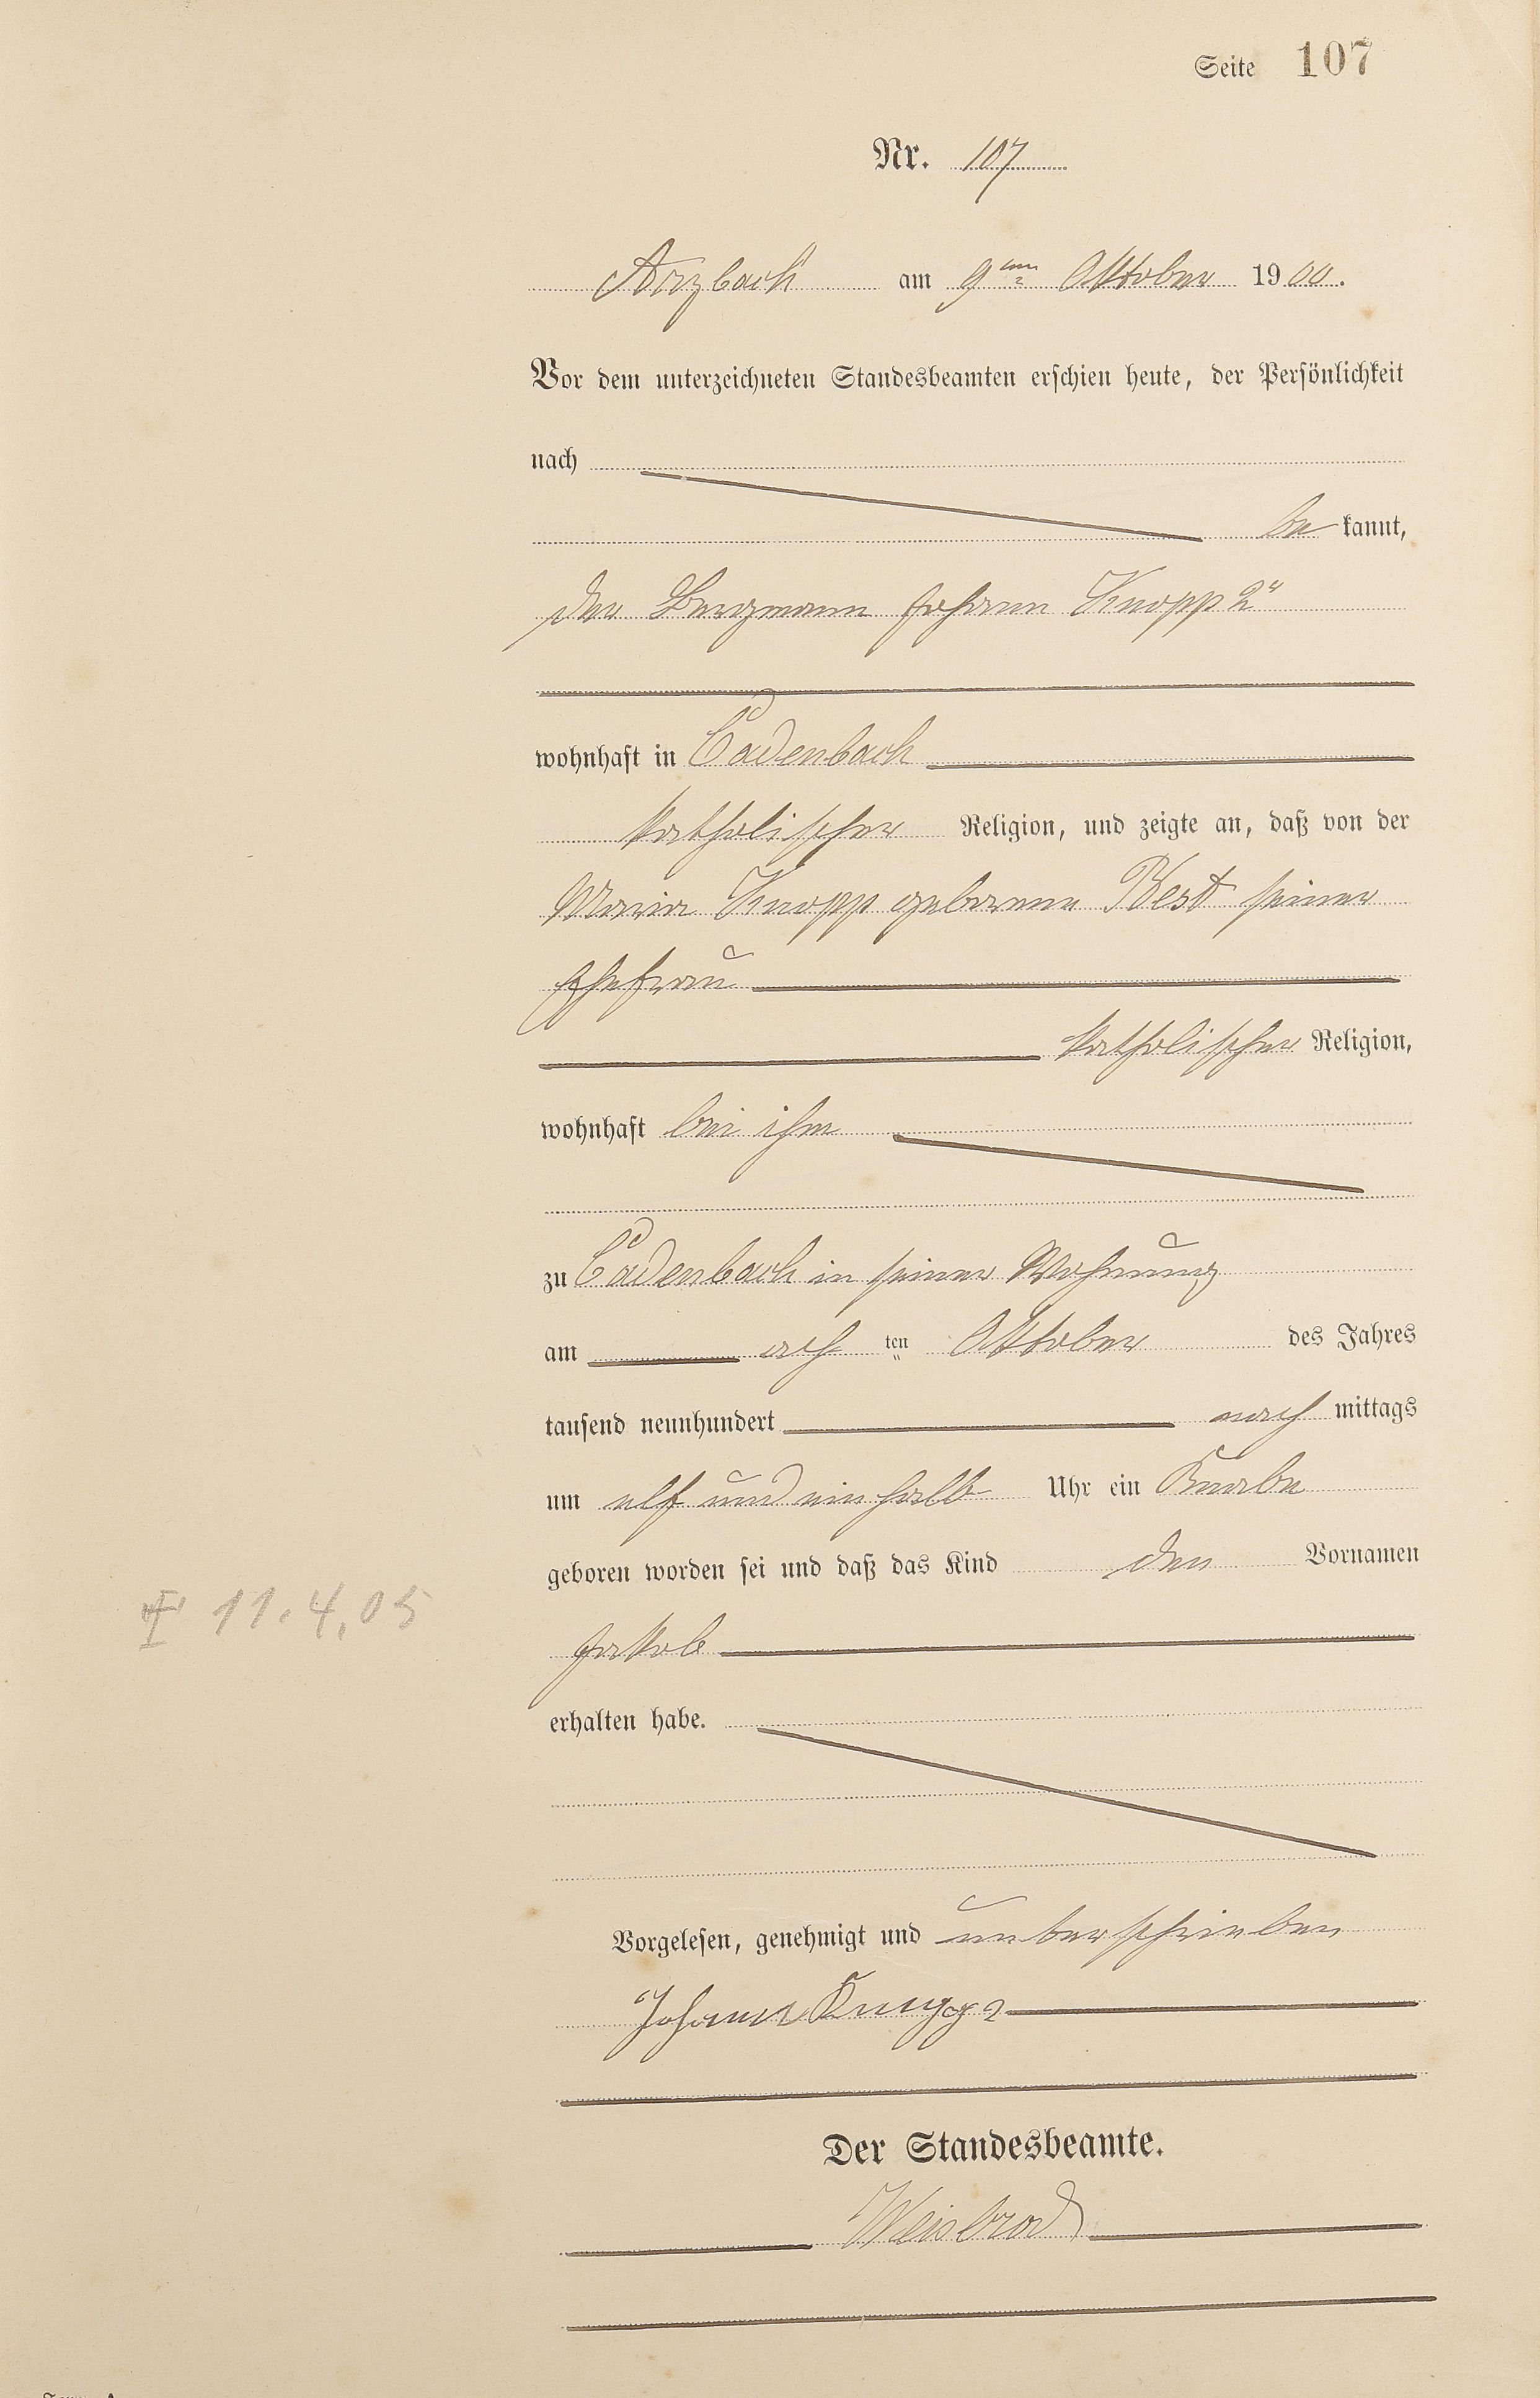 Seite 107
Nr. 107
Arzbach am 9ten Oktober 1900.
Vor dem unterzeichneten Standesbeamten erschien heute, der Persönlichkeit
nach
be kannt,
der Bergmann Johann Knopp 2r
wohnhaft in Cadenbach
katholischer Religion, und zeigte an, daß von der
Maria Knopp geborene Best seiner
Ehefrau
katholischer Religion,
wohnhaft bei ihm
zu Cadenbach in seiner Wohnung
am ach ten Oktober des Jahres
tausend neunhundert nach mittags
um elf und ein halb Uhr ein Knabe
geboren worden sei und daß das Kind den Vornamen
† 11.4.05
Jakob
erhalten habe.
Vorgelesen, genehmigt und unterschrieben
Johann Knopp 2
Der Standesbeamte.
Weisbrod